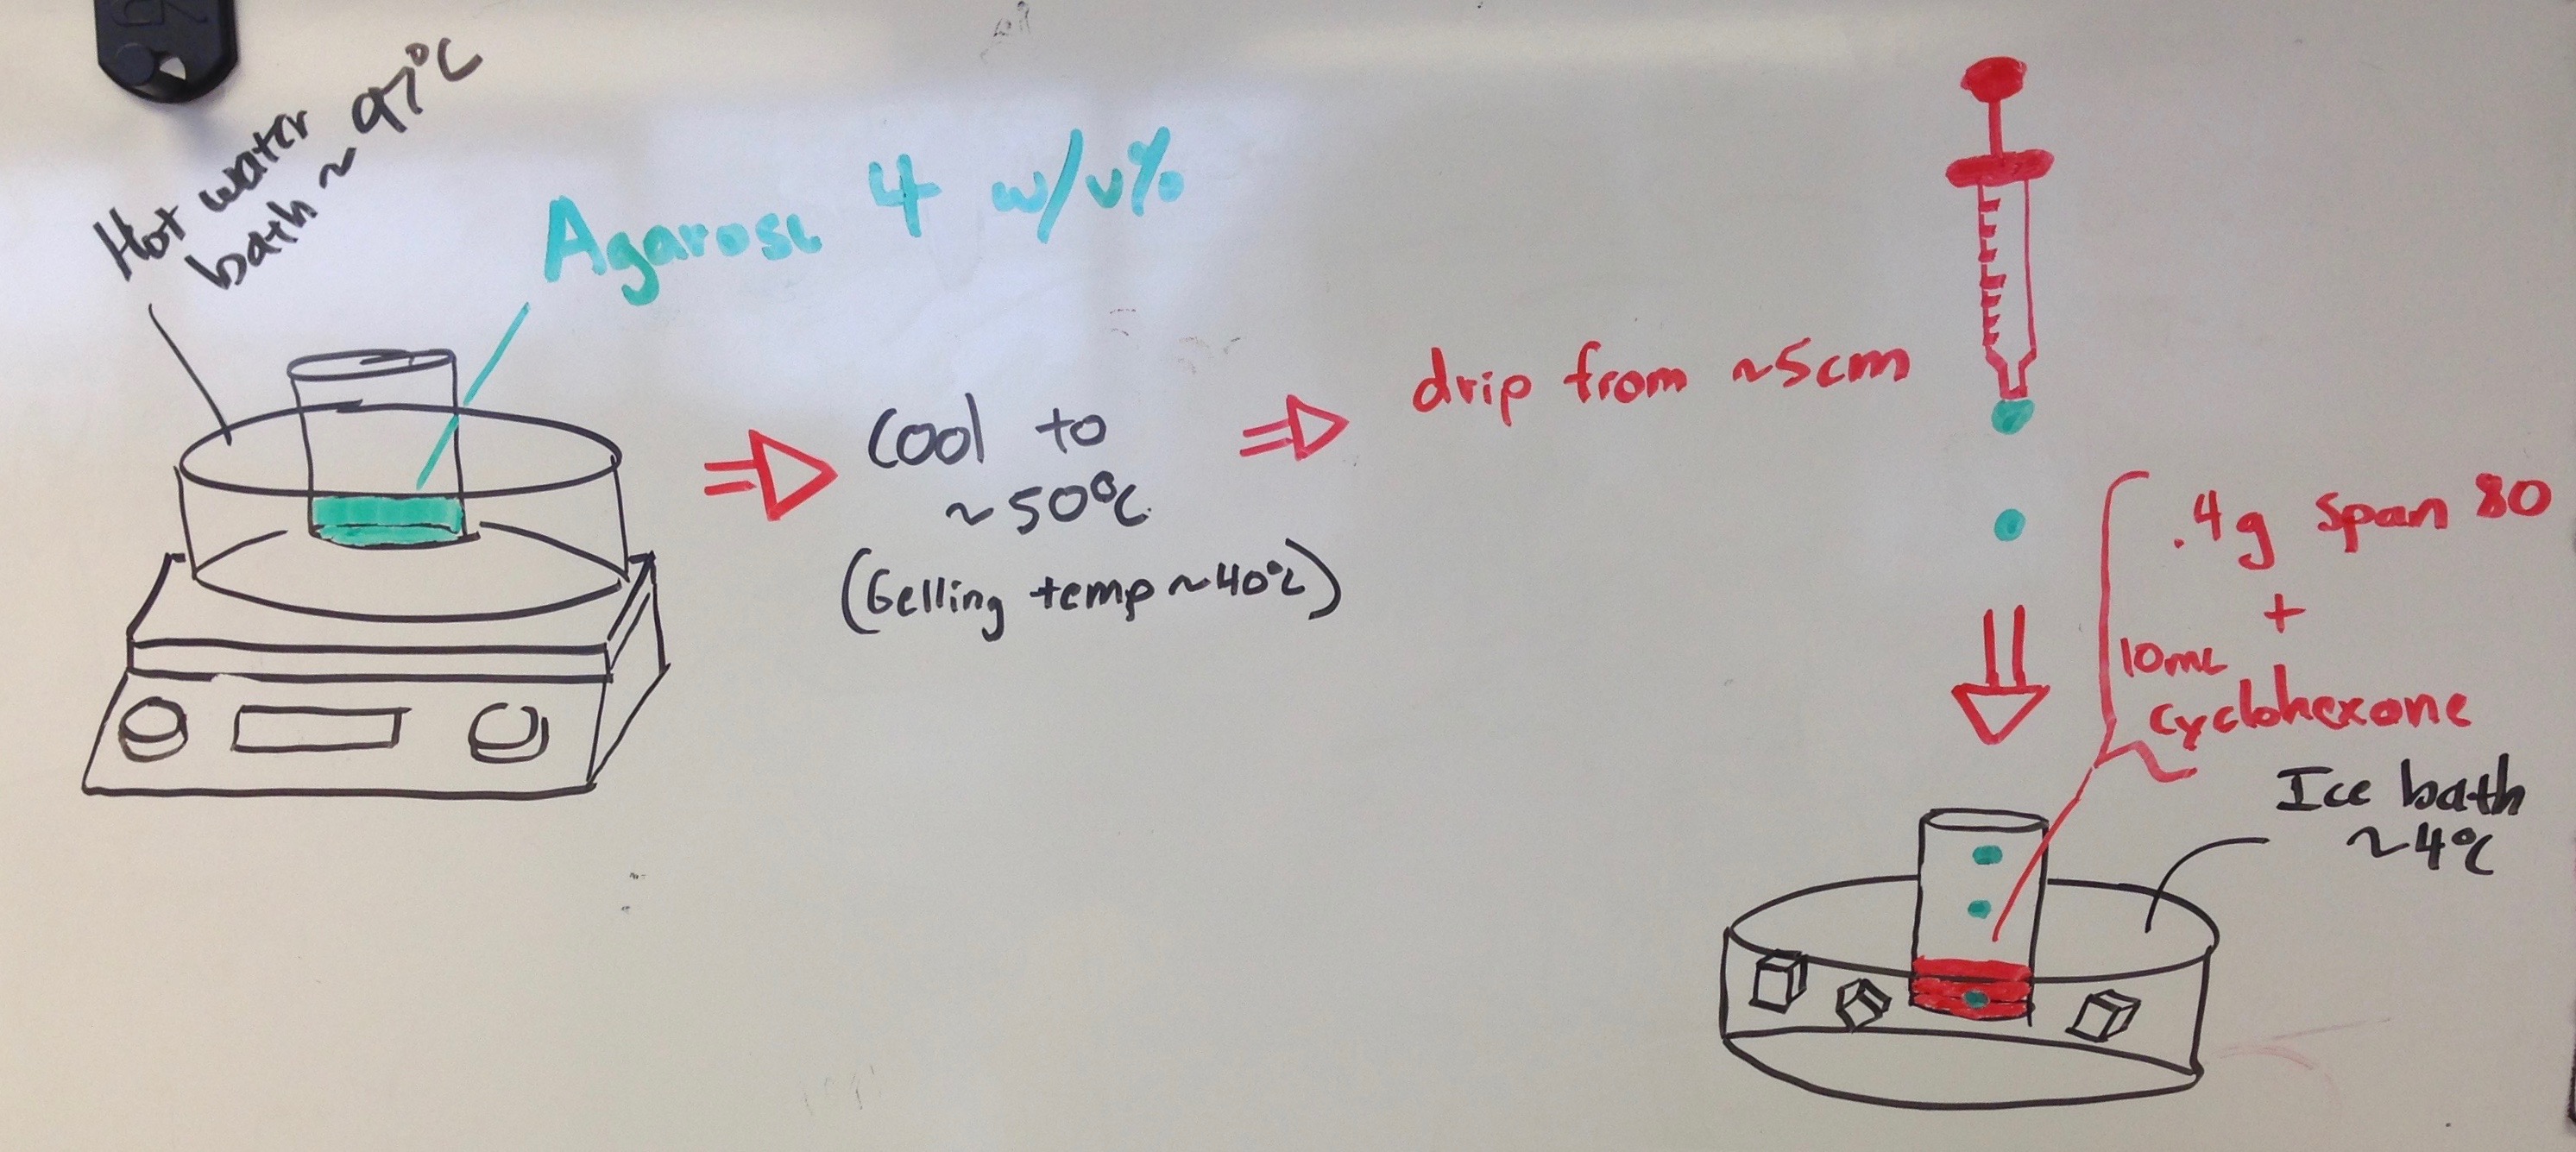 Hot water
bath ~ 97°C
Agarose 4 w/v%
Cool to
~50°C
(Gelling temp ~40°C)
drip from ~5cm
.4g span 80
+
10mL
cyclohexane
Ice bath
~4°C